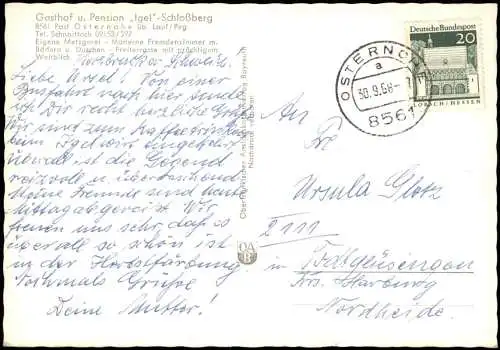 Gasthof u. Pension „Igel"-Schloßberg
8561 Post Osternohe üb. Lauf/Peg
Tel. Schnaittach 09153/297
Eigene Metzgerei - Moderne Fremdenzimmer m.
Bädern u. Duschen - Freiterrasse mit prächtigem
Weitblick
Liebe Ursel! Von einer
Ausfahrt nach hier sende
ich Dir recht herzliche Grüße
Wir sind zum Kaffeetrinken
im Igel wo eingekehrt
überall ist die Gegend
reizvoll u überraschend
Meine Freunde sind heute
Mittag abgereist. Wir
freuen uns sehr, daß es
überall so schön ist
in der Herbstfärbung
Nochmals Grüße
Deine Mutter!
OA
B
Deutsche Bundespost
20
LORSCH/HESSEN
OSTERNOHE
a
30.9.68-
8561
An
Ursula Glotz
2111
in
Krs. Harburg
Nordheide